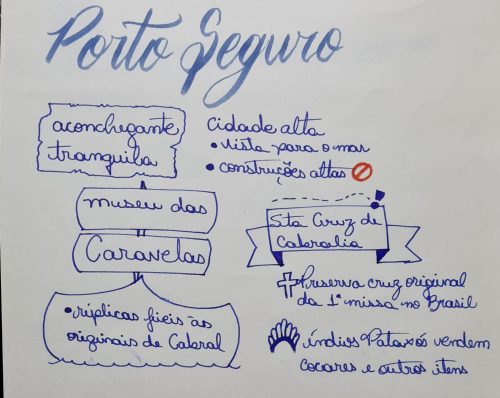 Porto Seguro
aconchegante
tranquila
cidade alta
• vista para o mar
• construções altas
museu das
Caravelas
• réplicas fiéis às
originais de Cabral
Sta Cruz de
Cabralia
Preserva cruz original
da 1ª missa no Brasil
índios Pataxós vendem
cocares e outros itens